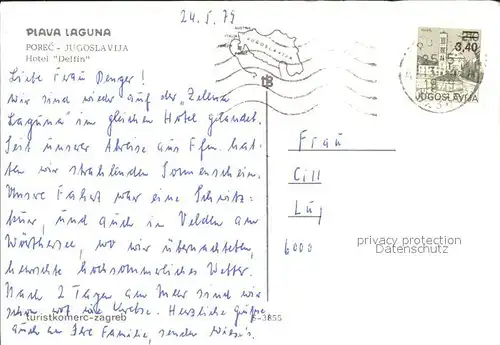 24.5.79
PLAVA LAGUNA
POREČ - JUGOSLAVIJA
Hotel "Delfin"
Liebe Frau Denger!
Wir sind wieder auf der "Zelena
Laguna" im gleichen Hotel gelandet.
Seit unserer Abreise aus Ffm. hat-
ten wir strahlenden Sonnenschein.
Unsere Fahrt war eine Schwitz-
kur, und auch in Velden am
Wörthersee, wo wir übernachteten,
herrschte hochsommerliches Wetter.
Nach 2 Tagen am Meer sind wir
schon rot wie Krebse. Herzliche Grüße,
auch an Ihre Familie, senden
turistkomerc-zagreb
3855
JUGOSLAVIJA
2,10
3,40
JUGOSLAVIJA
Frau
Cill
6000
privacy protection
Datenschutz